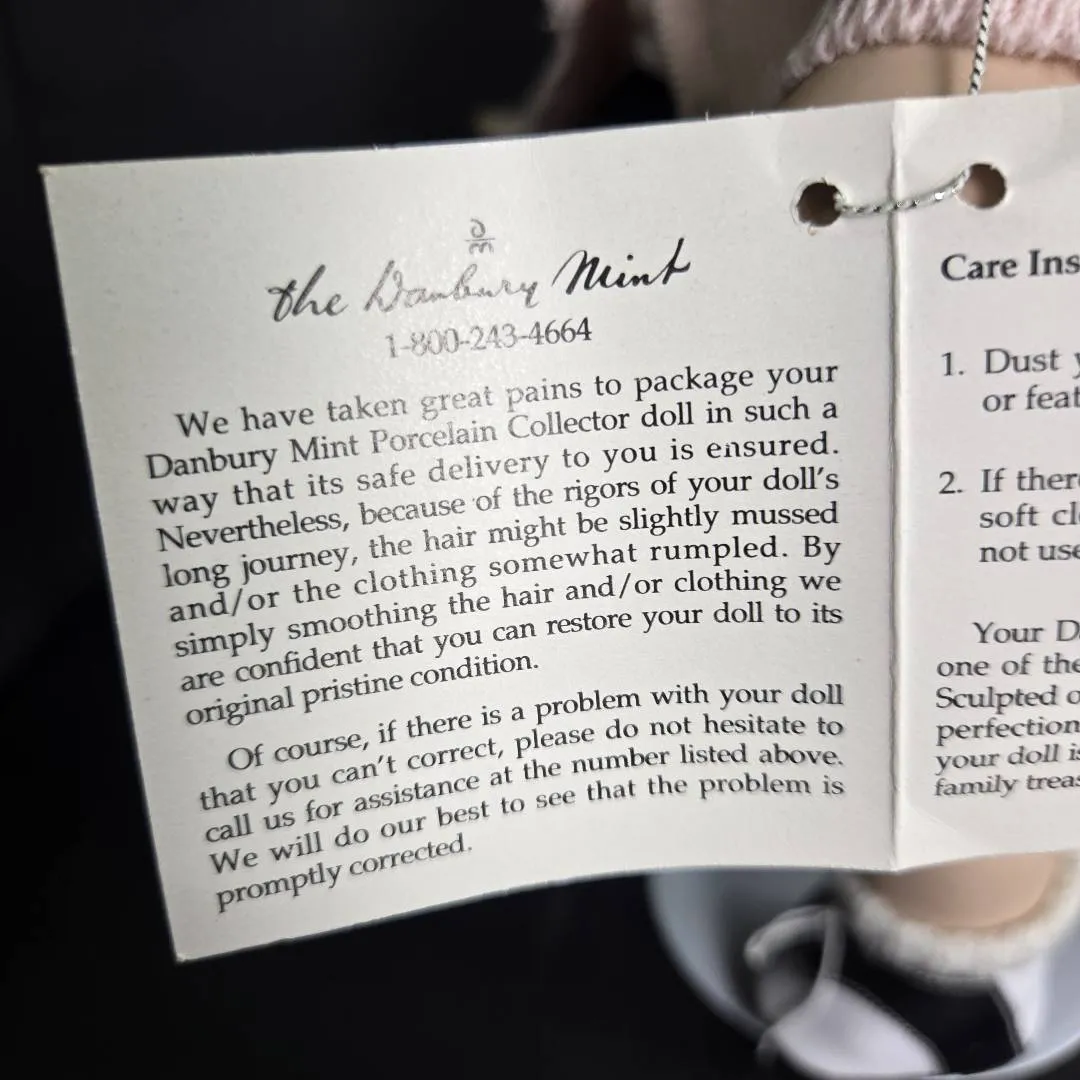 dm
the Danbury Mint
1-800-243-4664
We have taken great pains to package your
Danbury Mint Porcelain Collector doll in such a
way that its safe delivery to you is ensured.
Nevertheless, because of the rigors of your doll's
long journey, the hair might be slightly mussed
and/or the clothing somewhat rumpled. By
simply smoothing the hair and/or clothing we
are confident that you can restore your doll to its
original pristine condition.
Of course, if there is a problem with your doll
that you can't correct, please do not hesitate to
call us for assistance at the number listed above.
We will do our best to see that the problem is
promptly corrected.
Care Ins
1. Dust y
or feat
2. If there
soft cl
not use
Your D
one of the
Sculpted o
perfection
your doll is
family treas